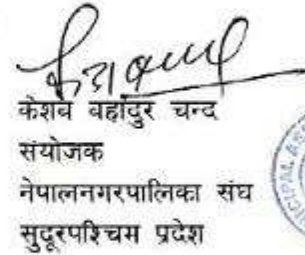 केशव बहादुर चन्द
संयोजक
नेपालनगरपालिका संघ
सुदूरपश्चिम प्रदेश